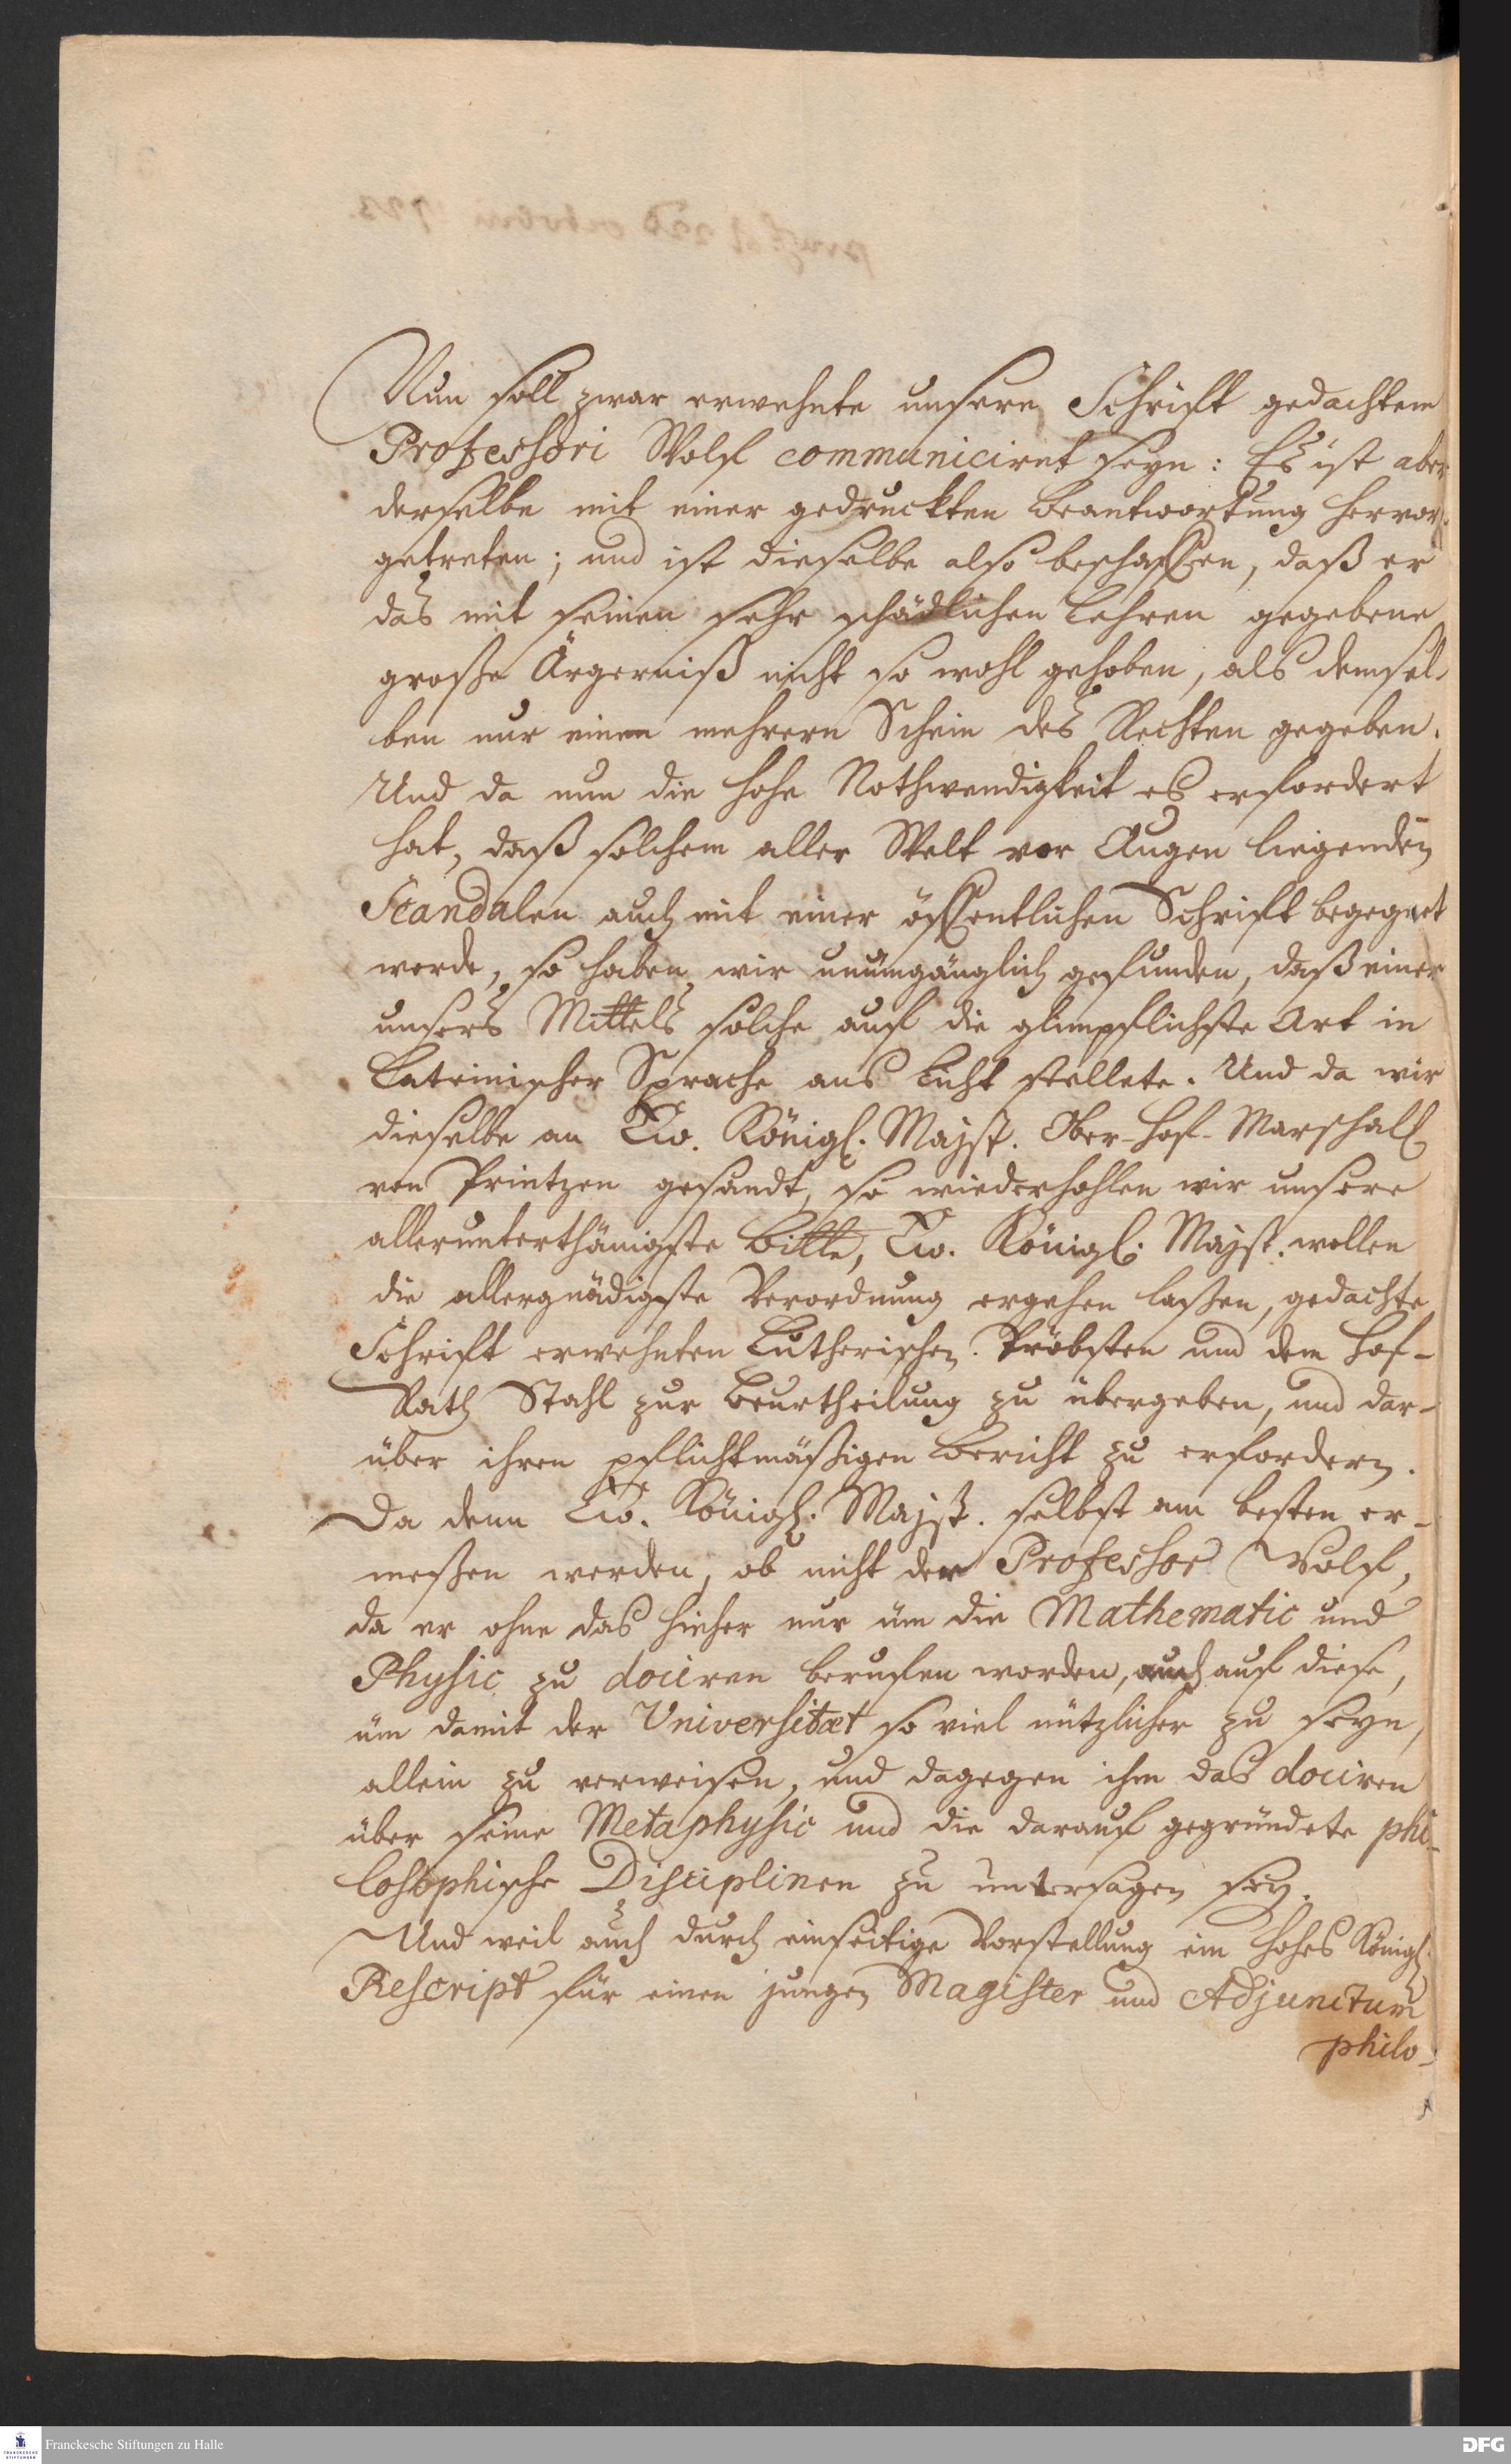 Nun soll zwar erwehnte unsere Schrift gedachtem
Professori Wolf communiciret seyn: Es ist aber
derselbe mit einer gedruckten Beantwortung hervor-
getreten; und ist dieselbe also beschaffen, daß er
das mit seinen sehr schädlichen Lehren gegebene
große Ärgerniß nicht so wohl gehoben, als demsel-
ben nur einen mehrern Schein des Rechten gegeben.
Und da nun die hohe Nothwendigkeit es erfordert
hat, daß solchem aller Welt vor Augen liegenden
Scandalen auch mit einer öffentlichen Schrift begegnet
werde, so haben wir unümgänglich gefunden, daß einer
unsers Mittels solche auf die glimpflichste Art in
Lateinischer Sprache ans Licht stellete. Und da wir
dieselbe an Ew. Königl. Majst. Ober-Hof-Marschall
von Printzen gesandt, so wiederhohlen wir unsere
allerunterthänigste Bitte, Ew. Königl. Majst. wollen
die allergnädigste Verordnung ergehen laßen, gedachte
Schrift erwehnten Lutherischen Pröbsten und dem Hof-
Rath Stahl zur Beurtheilung zu übergeben, und dar-
über ihren pflichtmäßigen Bericht zu erfordern.
Da denn Ew. Königl. Majst. selbst am besten er-
meßen werden, ob nicht der Professor Wolf,
da er ohne das hieher nur üm die Mathematic und
Physic zu dociren beruffen worden, auch auf diese,
üm damit der Universitæt so viel nützlicher zu seyn,
allein zu verweisen, und dagegen ihm das dociren
über seine Metaphysic und die darauf gegründete phi-
losophische Disciplinen zu untersagen sey.
Und weil auch durch einseitige Vorstellung ein hohes Königl.
Rescript für einen jungen Magister und Adjunctum
philo-
Franckesche Stiftungen zu Halle
DFG